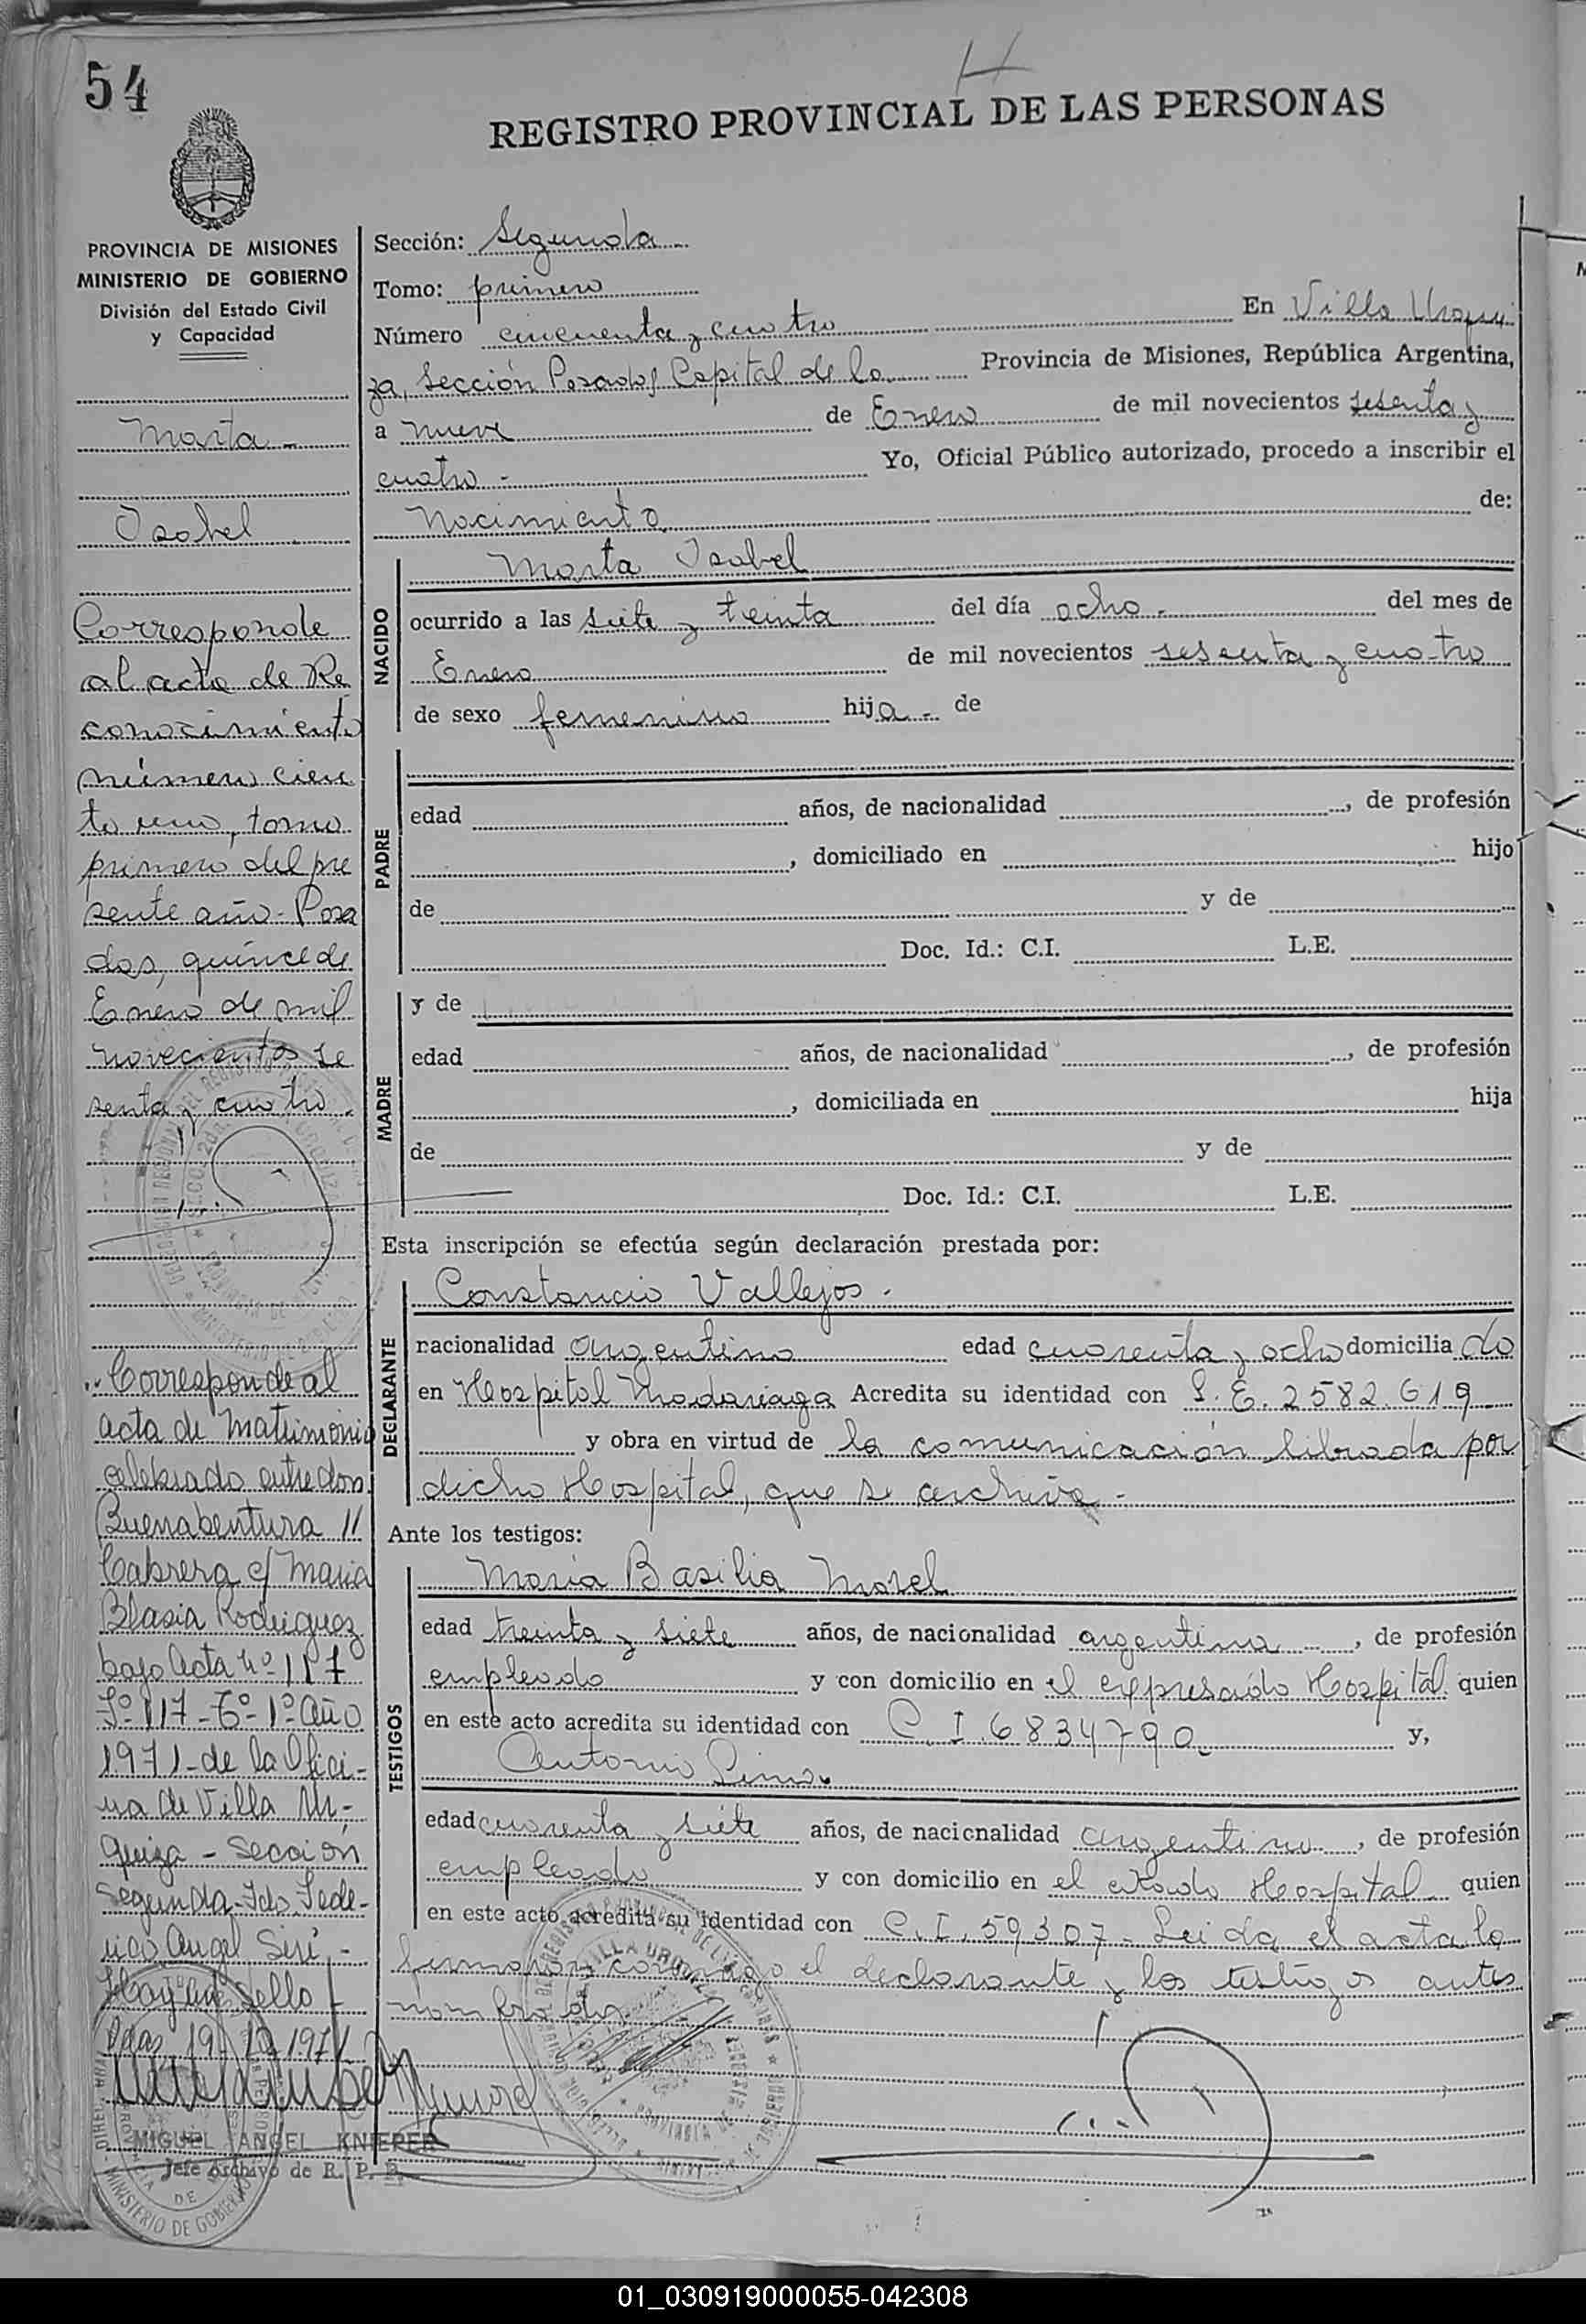 54
REGISTRO PROVINCIAL DE LAS PERSONAS
PROVINCIA DE MISIONES
MINISTERIO DE GOBIERNO
División del Estado Civil
y Capacidad
Marta
Isabel
Corresponde
al acta de Re
conocimiento
número cien
to uno, tomo
primero del pre
sente año - Posa
das, quince de
Enero de mil
novecientos se
senta y cuatro.
Corresponde al
acta de Matrimonio
celebrado entre don
Buenabentura
Cabrera c/ Maria
Blasia Rodriguez
bajo Acta Nº 117
Fº 117 - Tº 1º año
1971 - de la Ofici-
na de Villa Ur-
quiza - Sección
Segunda - Fdo. Fede-
rico Angel Siri -
Hay un Sello
Pdas 19 1971
MIGUEL ANGEL KNIEPER
Jefe Archivo de R. P. P.
Sección: Segunda
Tomo: primero
Número cincuenta y cuatro En Villa Urqui
za, Sección Posadas Capital de la Provincia de Misiones, República Argentina,
a nueve de Enero de mil novecientos sesenta y
cuatro - Yo, Oficial Público autorizado, procedo a inscribir el
Nacimiento de:
NACIDO
Marta Isabel
ocurrido a las siete y treinta del día ocho - del mes de
Enero de mil novecientos sesenta y cuatro
de sexo femenino hija - de
PADRE
edad años, de nacionalidad , de profesión
, domiciliado en hijo
de y de
Doc. Id.: C.I. L.E.
MADRE
y de
edad años, de nacionalidad , de profesión
, domiciliada en hija
de y de
Doc. Id.: C.I. L.E.
Esta inscripción se efectúa según declaración prestada por:
DECLARANTE
Constancio Vallejos -
nacionalidad argentino edad cuarenta y ocho domiciliado
en Hospital Madariaga Acredita su identidad con L.E. 2582.619
y obra en virtud de la comunicación librada por
dicho Hospital, que se archiva -
Ante los testigos:
TESTIGOS
Maria Basilia Morel
edad treinta y siete años, de nacionalidad argentina , de profesión
empleada y con domicilio en el expresado Hospital quien
en este acto acredita su identidad con C.I. 6834790 y,
Antonio
edad cuarenta y siete años, de nacionalidad argentino , de profesión
empleado y con domicilio en el citado Hospital quien
en este acto acredita su identidad con C.I. 59307 - Leida el acta la
firmaron conmigo el declarante y los testigos antes
nombrados
01_030919000055-042308